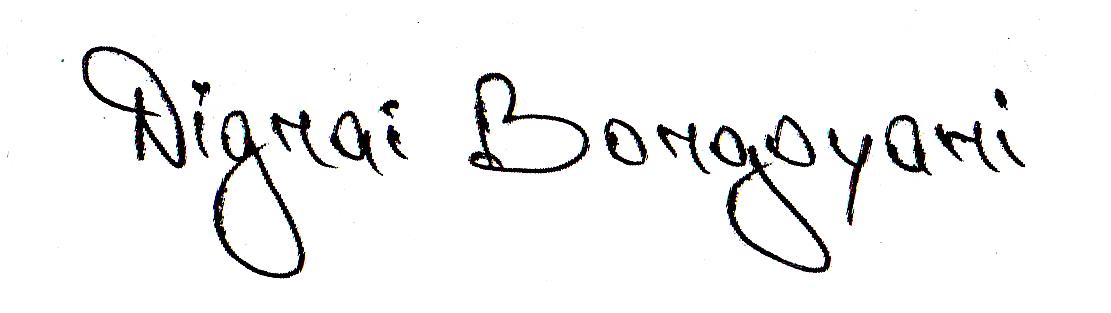 Dignai Bongoyani